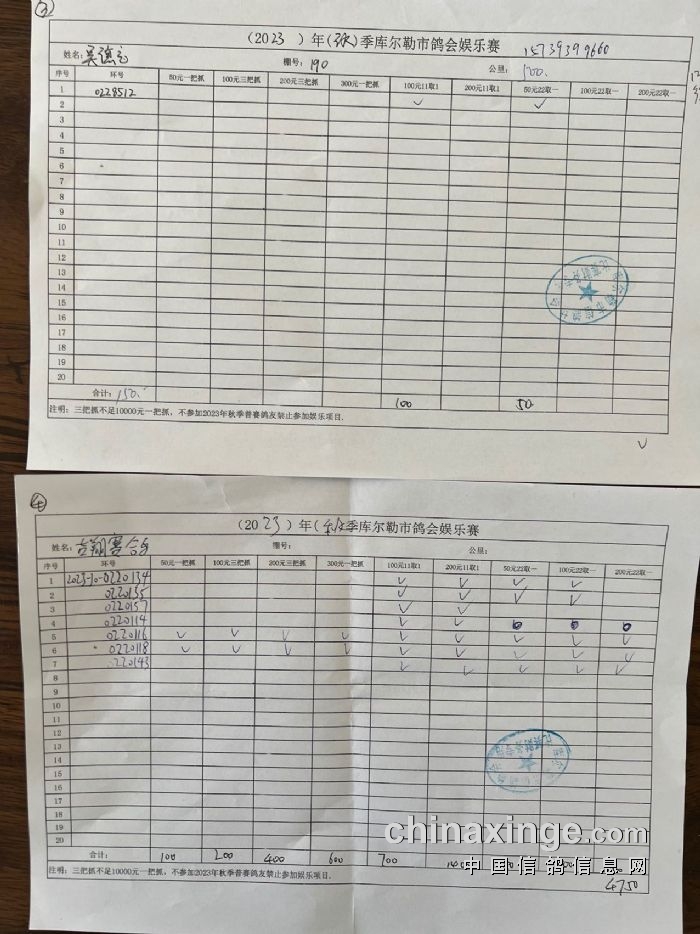 ③
(2023 )年(秋)季库尔勒市鸽会娱乐赛 15739399660
姓名: 棚号: 190 公里: 100.
序号 环号 50元一把抓 100元三把抓 200元三把抓 300元一把抓 100元11取1 200元11取1 50元22取一 100元22取一 200元22取一
1 0228512
2 ✓ ✓
3
4
5
6
7
8
9
10
11
12
13
14
15
16
17
18
19
20
合计: 150. 100 50
注明: 三把抓不足10000元一把抓, 不参加2023年秋季普赛鸽友禁止参加娱乐项目.
✓
④
(2023 )年(秋)季库尔勒市鸽会娱乐赛
姓名: 吉翔赛鸽 棚号: 公里:
序号 环号 50元一把抓 100元三把抓 200元三把抓 300元一把抓 100元11取1 200元11取1 50元22取一 100元22取一 200元22取一
1 2023-30-0220134 ✓ ✓ ✓ ✓
2 0220135 ✓ ✓ ✓ ✓
3 0220157 ✓ ✓
4 0220114 ✓ ✓
5 0220116 ✓ ✓ ✓ ✓ ✓ ✓ ✓ ✓ ✓
6 0220118 ✓ ✓ ✓ ✓ ✓ ✓ ✓ ✓ ✓
7 0220143 ✓ ✓ ✓ ✓ ✓
8
9
10
11
12
13
14
15
16
17
18
19
20
合计: 100 200 400 600 700
注明: 三把抓不足10000元一把抓, 不参加2023年秋季普赛鸽友禁止参加娱乐项目.
4750
chinaxinge.com
中国信鸽信息网